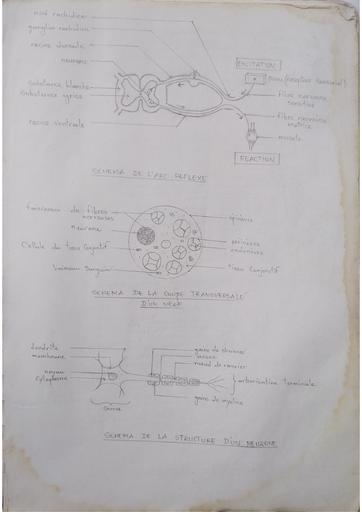 nerf rachidien
ganglion rachidien
racine dorsale
neurone
substance blanche
substance grise
racine ventrale
EXCITATION
peau (récepteur sensoriel)
fibre nerveuse
sensitive
fibre nerveuse
motrice
muscle
REACTION
SCHEMA DE L'ARC REFLEXE
faisceaux de fibres
nerveuses
neurone
Cellule du tissu conjonctif
Vaisseau sanguin
épinèvre
périnèvre
endonèvre
tissu conjonctif
SCHEMA DE LA COUPE TRANSVERSALE
D'UN NERF
dendrite
membrane
noyau
cytoplasme
soma
gaine de schwann
axone
noeud de ranvier
arborisation terminale
gaine de myéline
SCHEMA DE LA STRUCTURE D'UN NEURONE